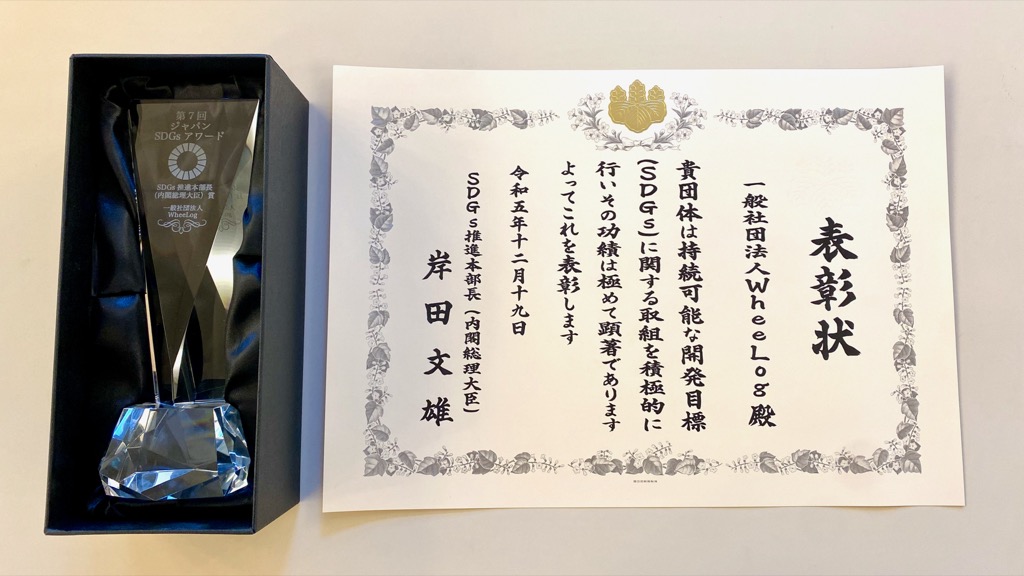 第7回
ジャパン
SDGs アワード
SDGs 推進本部長
(内閣総理大臣) 賞
一般社団法人
WheeLog
表彰状
一般社団法人WheeLog 殿
貴団体は持続可能な開発目標
(SDGs)に関する取組を積極的に
行いその功績は極めて顕著であります
よってこれを表彰します
令和五年十二月十九日
SDGs推進本部長(内閣総理大臣)
岸田文雄